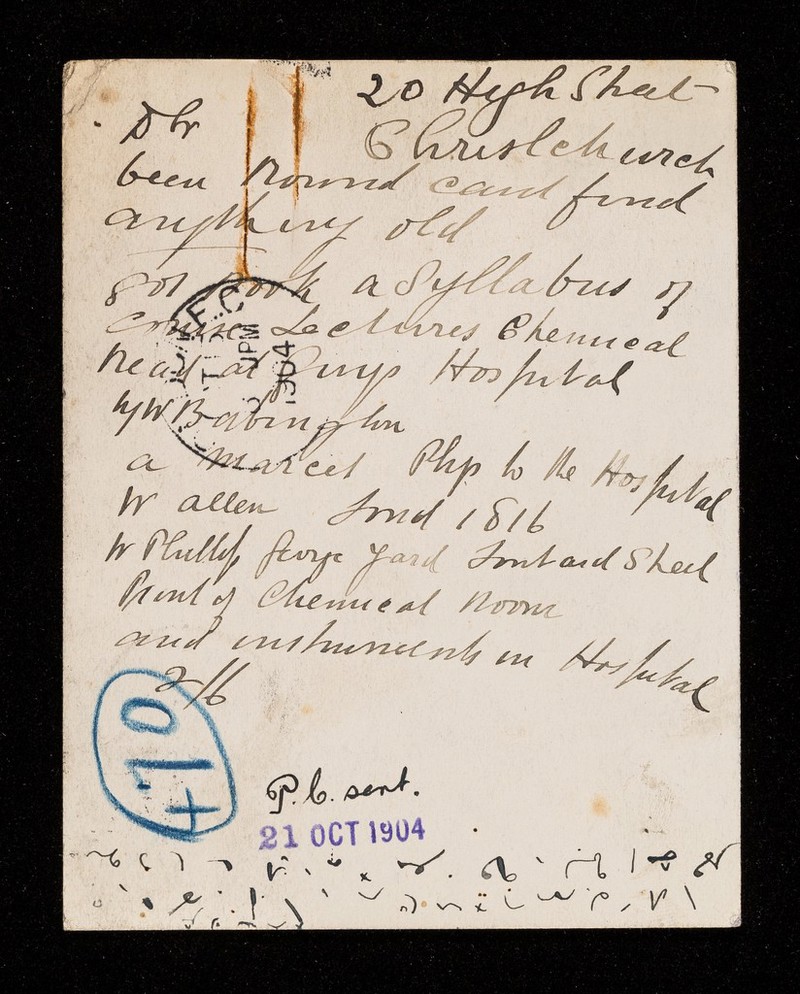 20 High Street
Christchurch
D Sr
been Round cant find
anything old
got Book a Syllabus of
Course Lectures Chemical
Read at Guys Hospital
by W Babington
a Marcet Phys to the Hospital
W allen Lond 1816
W Phillips George Yard Lombard Street
Print of Chemical Room
and instruments in Hospital
2/6
470
P.C. sent.
21 OCT 1904
PM
1904